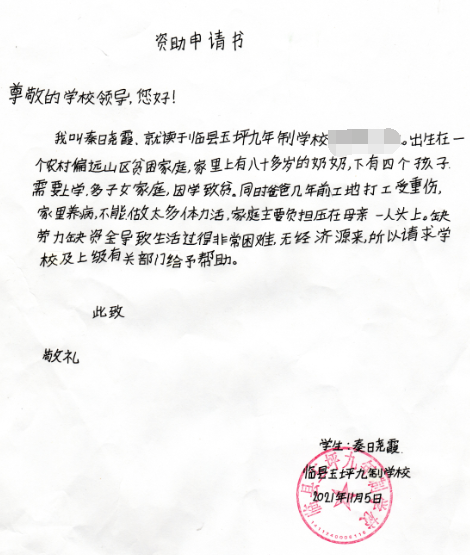 资助申请书
尊敬的学校领导,您好!
我叫秦日尧霞、就读于临县玉坪九年制学校。出生在一
个农村偏远山区贫困家庭,家里上有八十多岁的奶奶,下有四个孩子
需要上学,多子女家庭,因学致贫。同时爸爸几年前工地打工受重伤,
家里养病,不能做太多体力活,家庭主要负担压在母亲一人头上。缺
劳力缺资金导致生活过得非常困难,无经济源来,所以请求学
校及上级有关部门给予帮助。
此致
敬礼
学生:秦日尧霞
临县玉坪九制学校
2021年11月5日
临县玉坪九年制学校